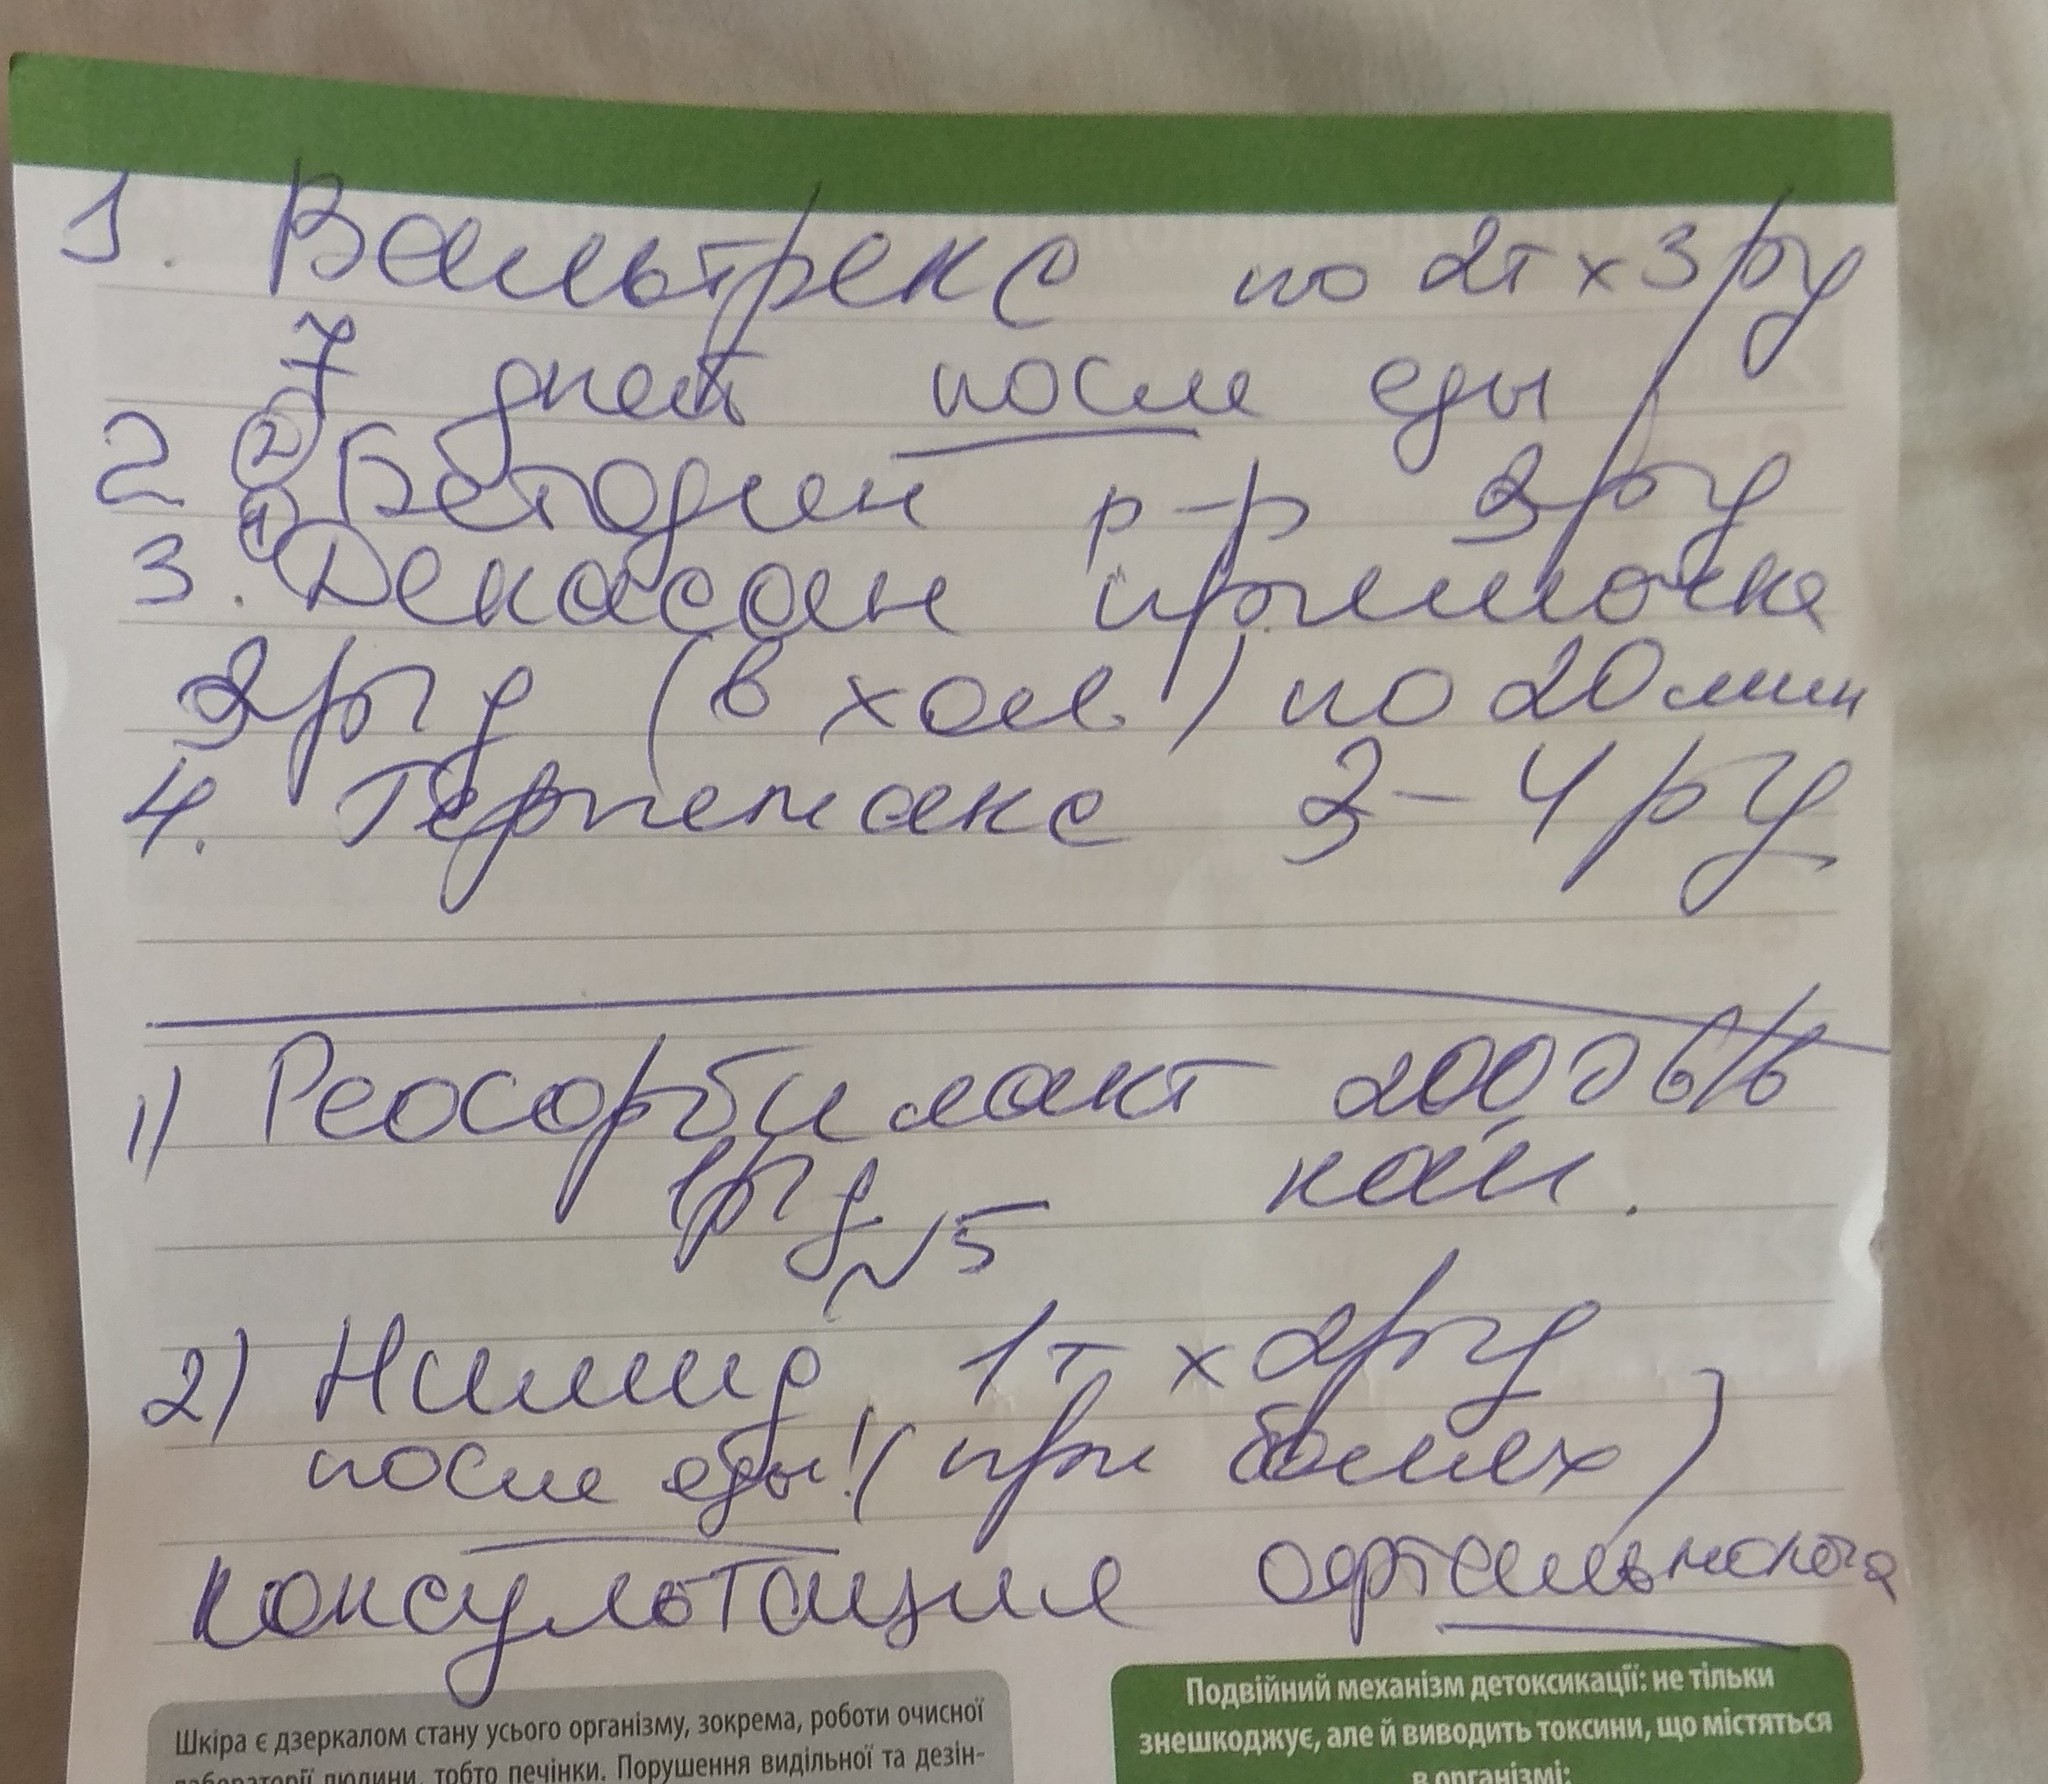 1. Вальтрекс по 2т х 3 рд
7 дней после еды
2 ② Бетодин р-р 2рд
3. ① Декасан примочка
2рд (в хол) по 20 мин
4. Герпемакс 3-4 рд
1) Реосорбилакт 200,0 в/в
1рд №5 кап.
2) Нимид 1т х 2рд
после еды! (при болях)
консультация офтальмолога
Шкіра є дзеркалом стану усього організму, зокрема, роботи очисної
лабораторії людини, тобто печінки. Порушення видільної та дезін-
Подвійний механізм детоксикації: не тільки
знешкоджує, але й виводить токсини, що містяться
в організмі: